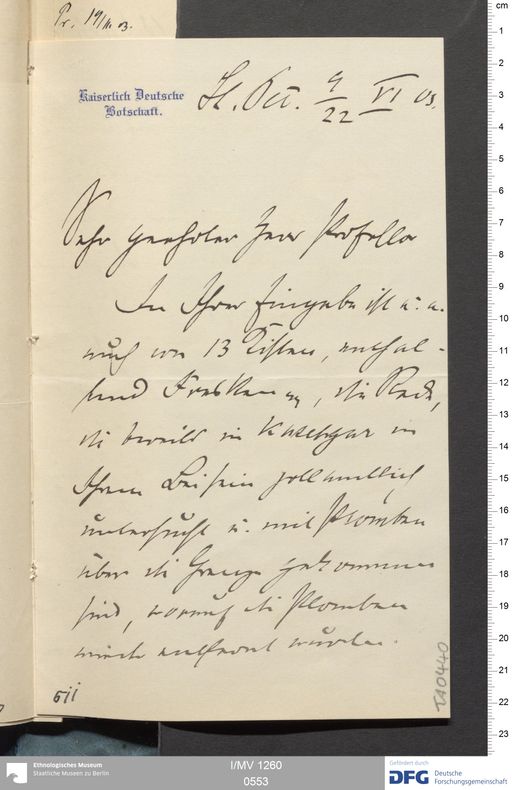 Pr. 19/6. 03.
Kaiserlich Deutsche
Botschaft.
St. Pet. 9/22 VI 03.
Sehr geehrter Herr Professor
In Ihrer Eingabe ist u. a.
auch von 13 Kisten, enthal-
tend Fresken , die Rede,
die bereits in Kaschgar in
Ihrem Beisein zollamtlich
untersucht u. mit Plomben
über die Grenze gekommen
sind, worauf die Plomben
entfernt wurden.
TA0440
Ethnologisches Museum
Staatliche Museen zu Berlin
I/MV 1260
0553
Gefördert durch
DFG Deutsche
Forschungsgemeinschaft
cm
1
2
3
4
5
6
7
8
9
10
11
12
13
14
15
16
17
18
19
20
21
22
23